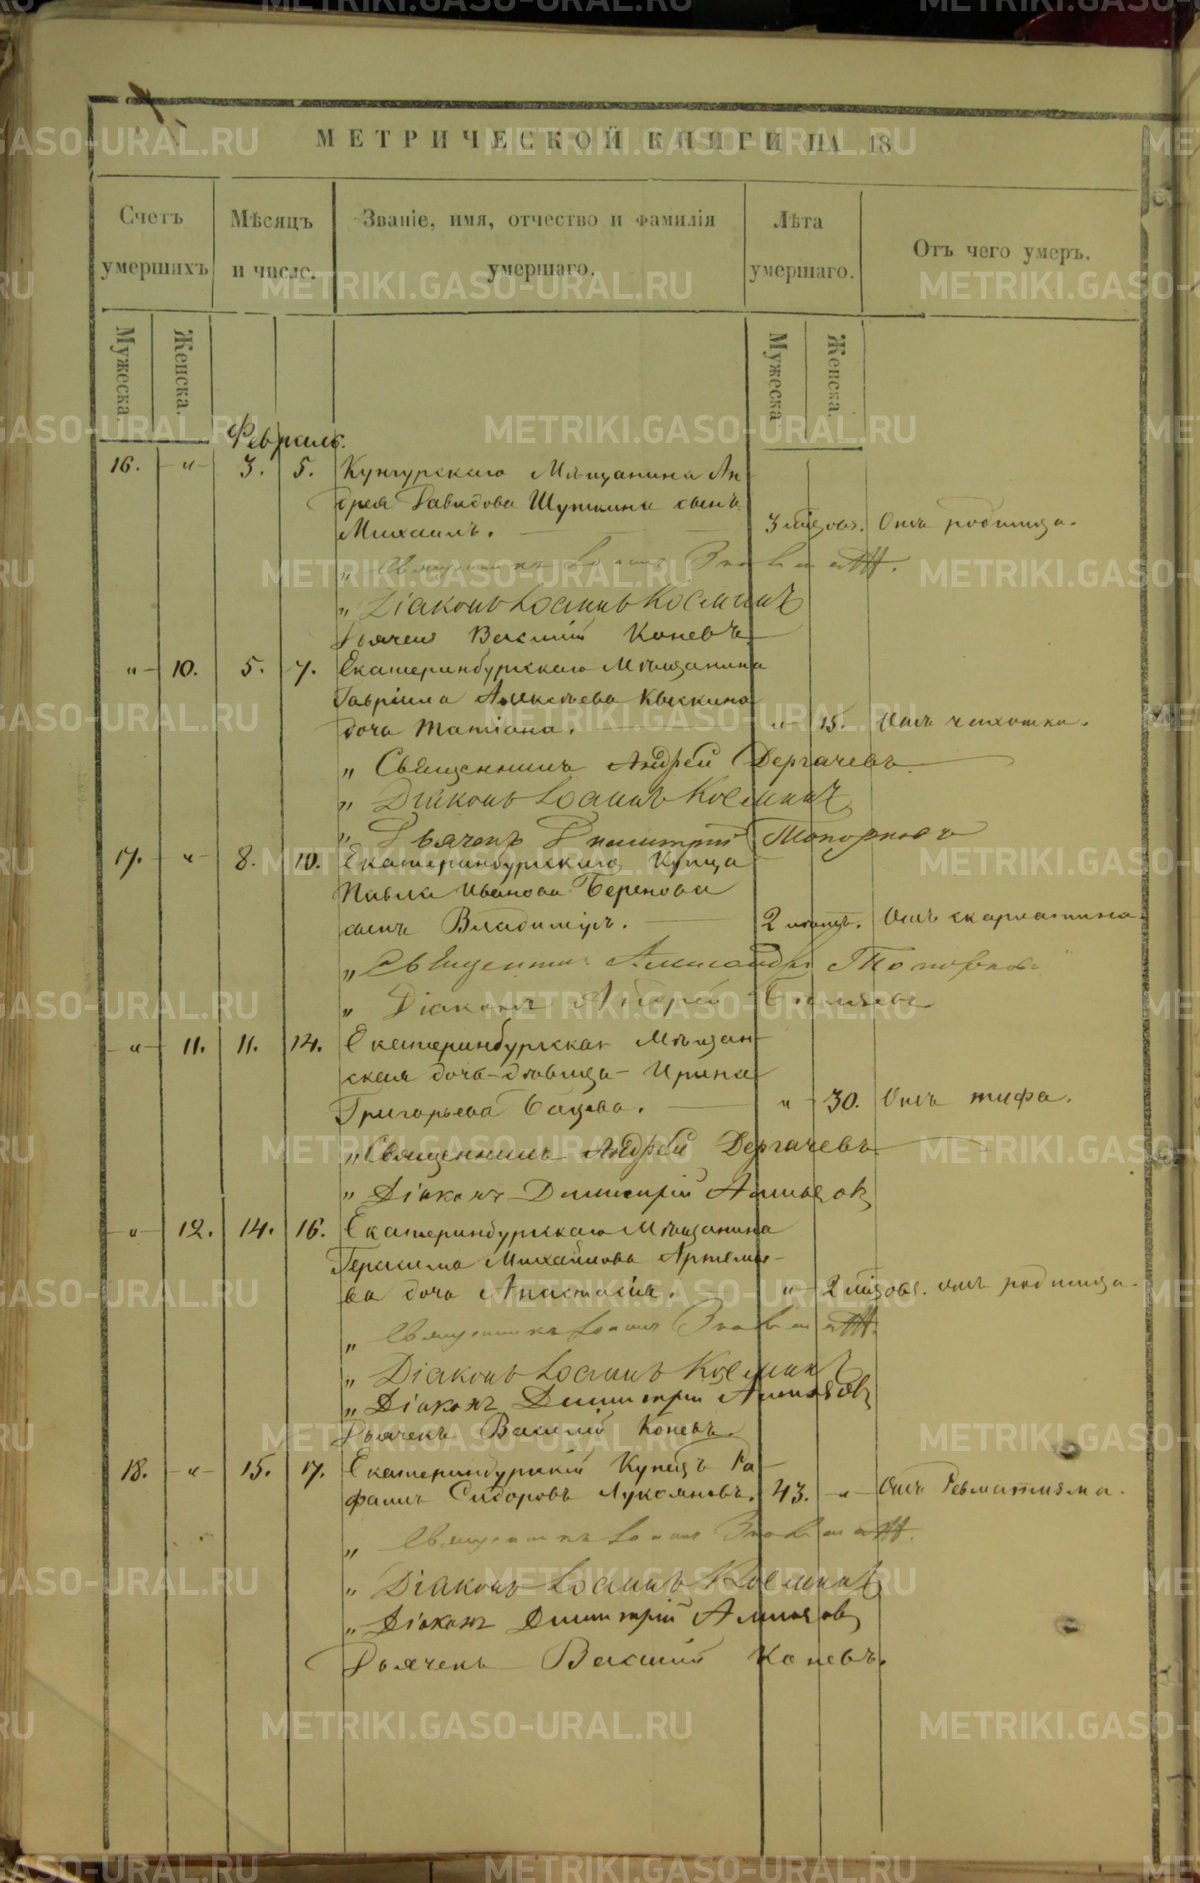 МЕТРИЧЕСКОЙ КНИГИ НА 18
Счетъ умершихъ
Мѣсяцъ и число.
Званіе, имя, отчество и фамилія умершаго.
Лѣта умершаго.
Отъ чего умеръ.
Мужеска.
Женска.
Мужеска
Женска.
Февраль.
16. " 3. 5. Кунгурскаго Мѣщанина Ан
дрея Давидова Шуткина сынъ
Михаилъ. 3 мѣсов. Отъ родимца.
" Священникъ Іоаннъ
" Діаконъ Іоаннъ Косминъ
Дьячек Василій Коневъ
" 10. 5. 7. Екатеринбургскаго Мѣщанина
Гавріила Алексѣева
дочь Татіана. " 15. Отъ чахотки.
" Священникъ Андрей Дергачевъ
" Діаконъ Іоаннъ Косминъ
" Дьячекъ Димитрій Топорковъ
17. " 8. 10. Екатеринбургскаго Купца
Павла Иванова Беренова
сынъ Владиміръ. 2 Отъ скарлатины.
" Священник Александръ Топорков
" Діаконъ Андрей
" 11. 11. 14. Екатеринбургская Мѣщан-
ская дочь-дѣвица- Ирина
Григорьева " 30. Отъ тифа.
" Священникъ Андрей Дергачевъ
" Діаконъ Димитрій
" 12. 14. 16. Екатеринбургскаго Мѣщанина
Герасима Михайлова Артемье-
ва дочь Анастасія. " 2 мѣсов. отъ родимца.
" Священникъ Іоаннъ
" Діаконъ Іоаннъ Косминъ
" Діаконъ Димитрій
Дьячекъ Василій Коневъ
18. " 15. 17. Екатеринбургскій Купецъ Ра
фаилъ Сидоровъ Лукояновъ. 43. " Отъ Ревматизма.
" Священникъ Іоаннъ
" Діаконъ Іоаннъ Косминъ
" Діаконъ Димитрій
Дьячекъ Василій Коневъ.
METRIKI.GASO-URAL.RU